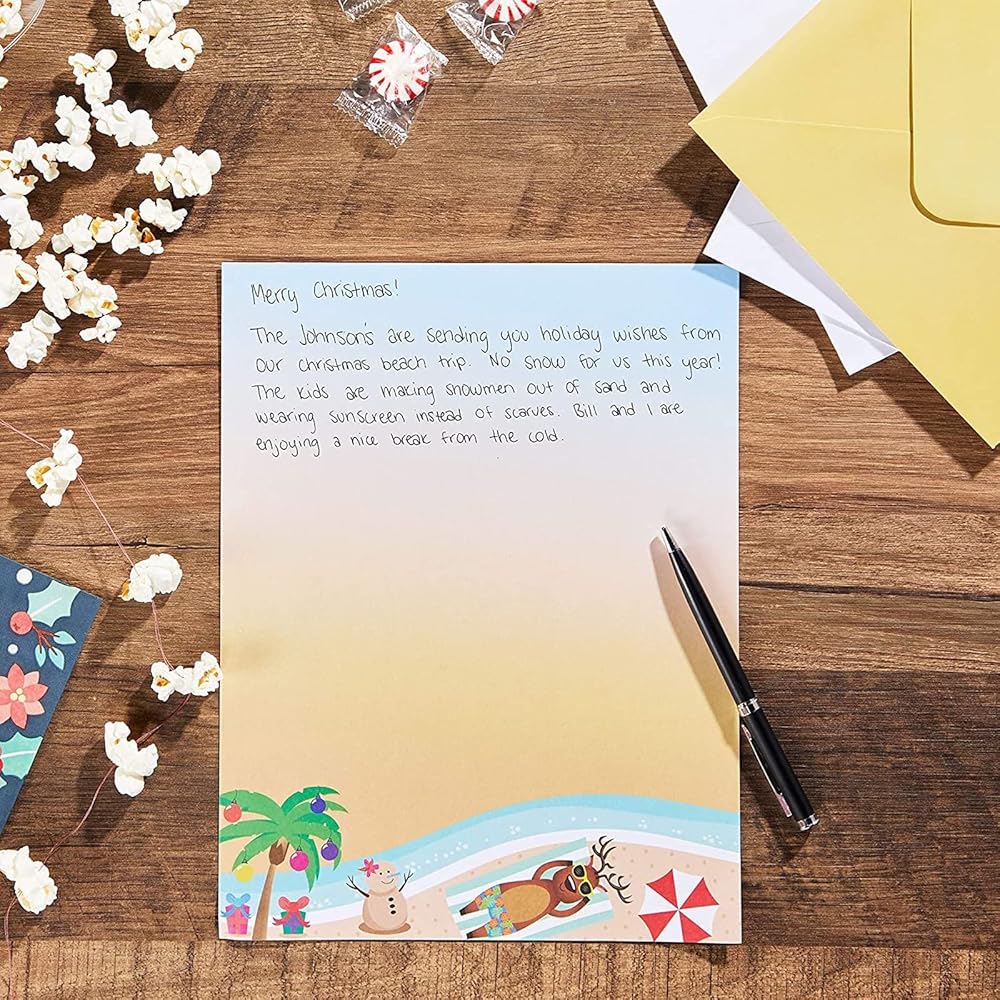 Merry Christmas!
The Johnson's are sending you holiday wishes from
our christmas beach trip. No snow for us this year!
The kids are making snowmen out of sand and
wearing sunscreen instead of scarves. Bill and I are
enjoying a nice break from the cold.